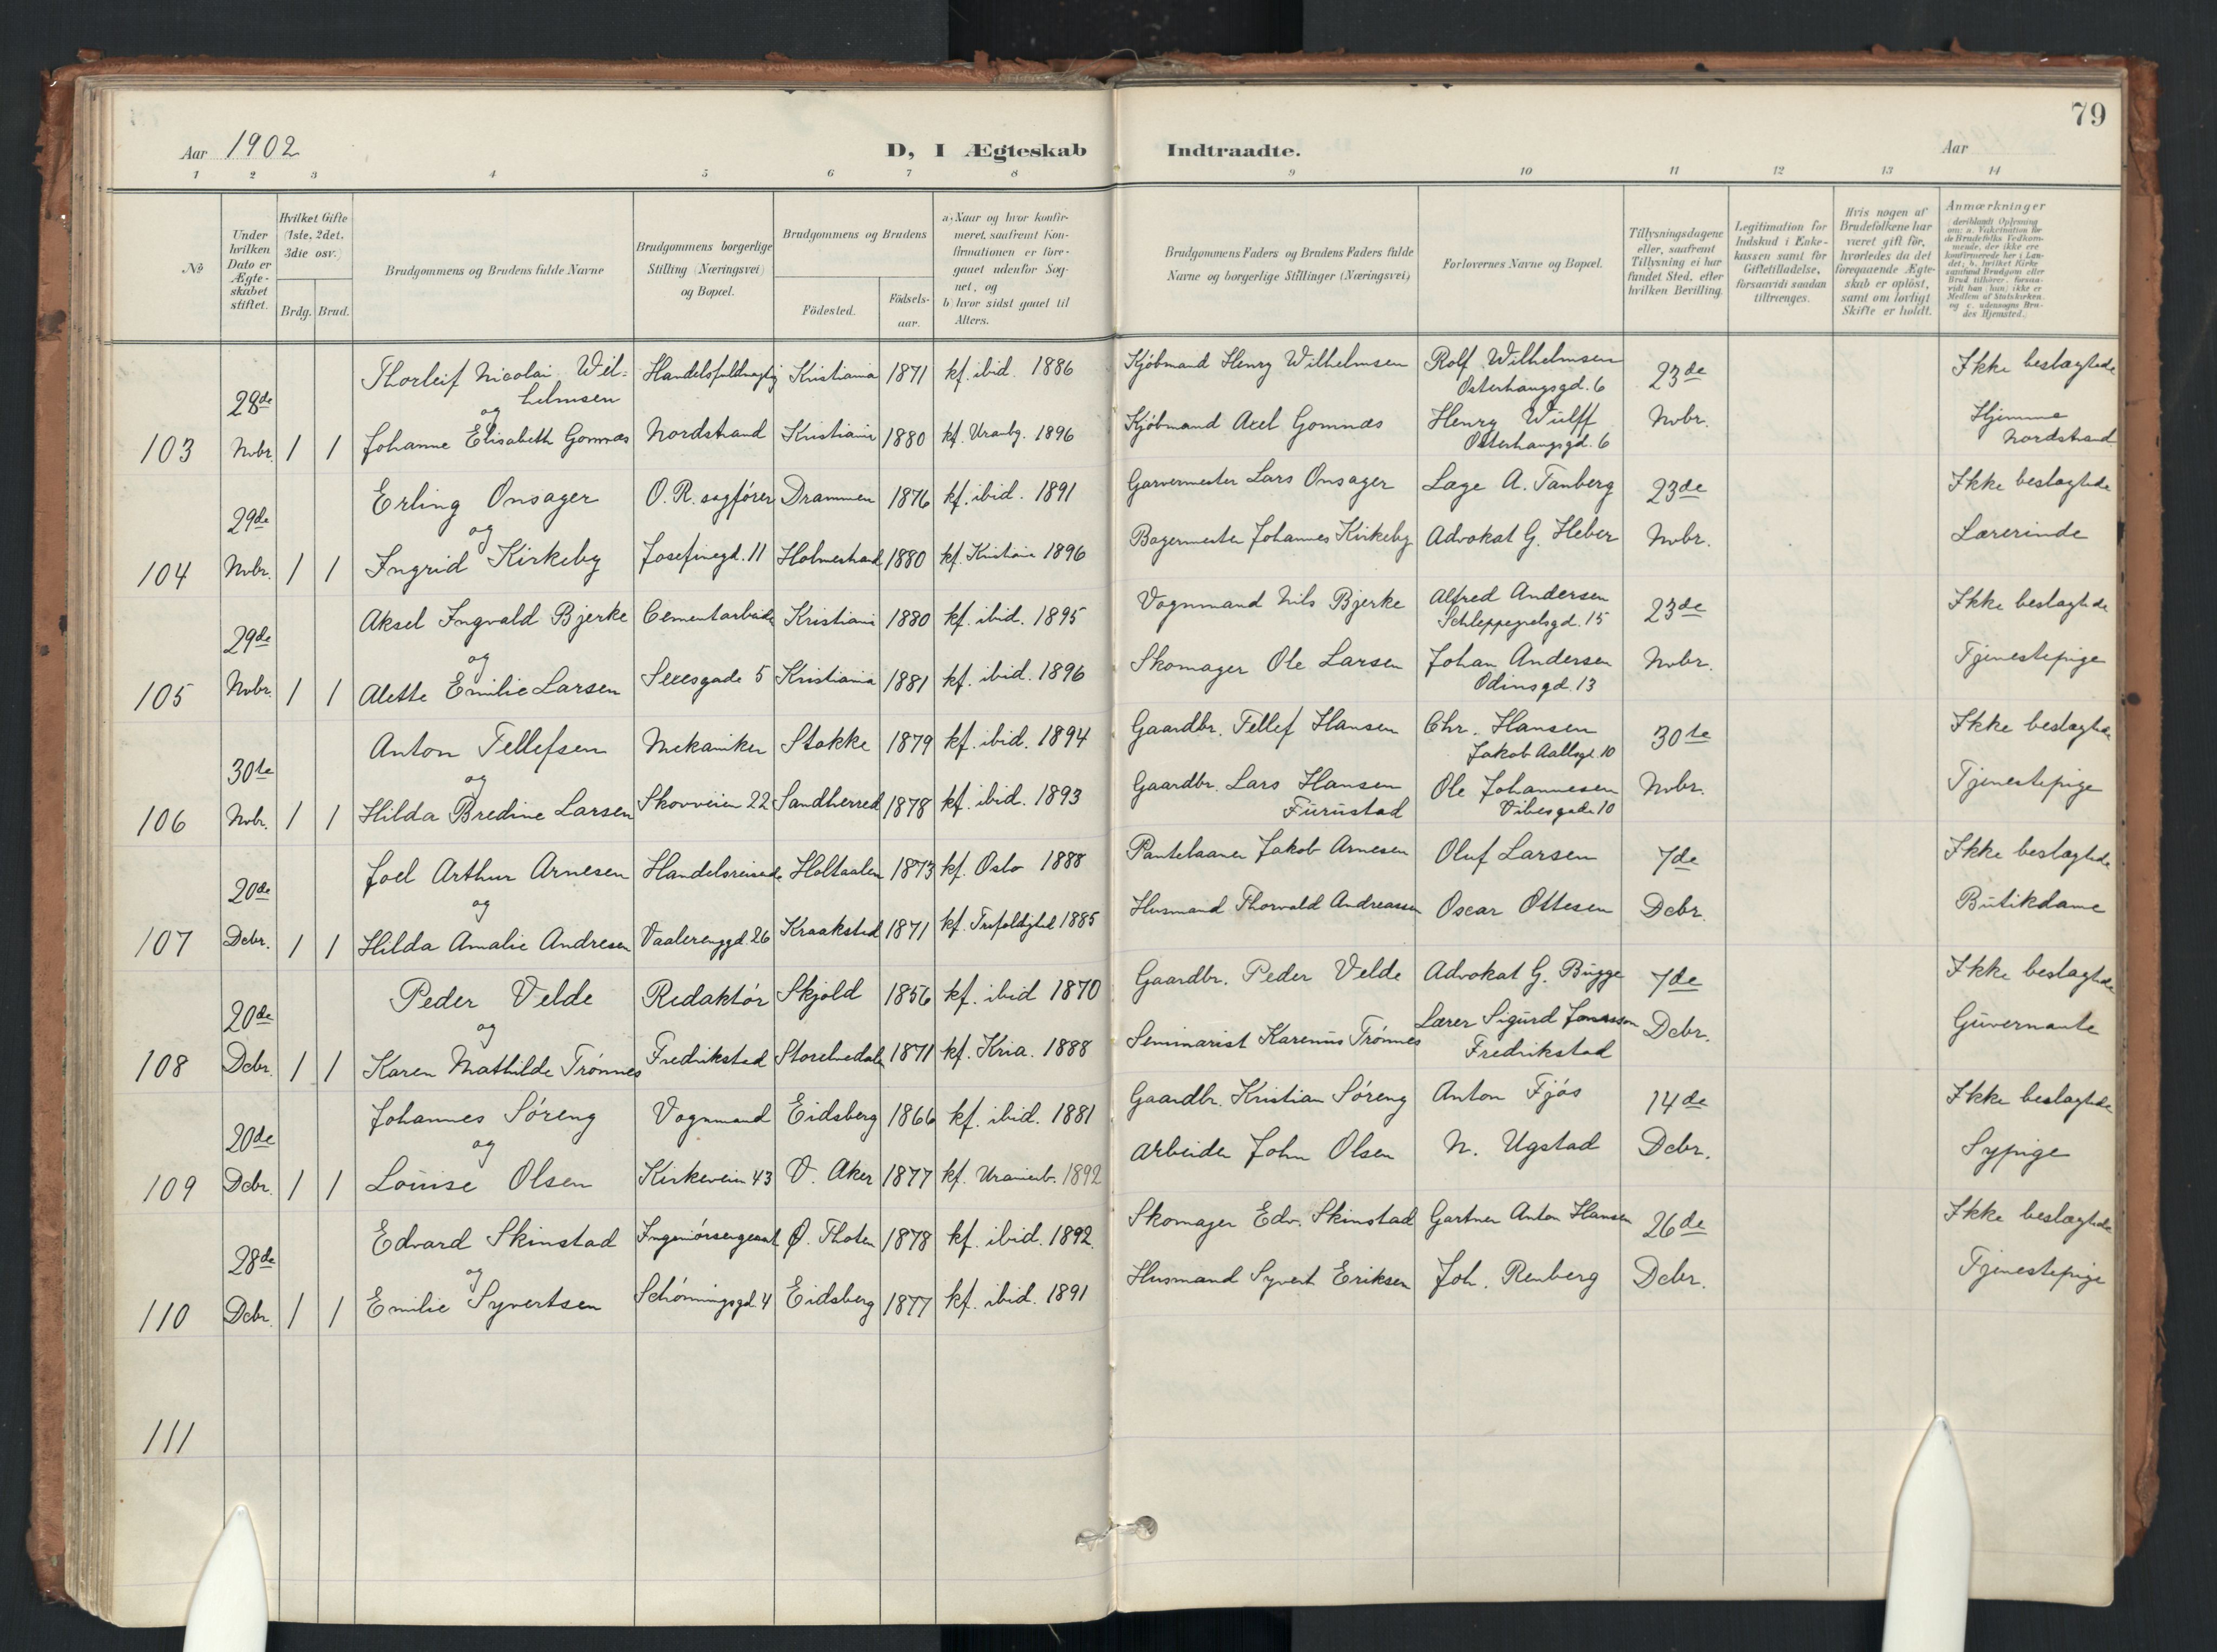 79
Aar 1902
D, I Ægteskab Indtraadte.
Aar
1 2 3 4 5 6 7 8 9 10 11 12 13 14
No
Under hvilken Dato er Ægteskabet stiftet.
Hvilket Gifte (1ste, 2det, 3die osv.)
Brdg. Brud.
Brudgommens og Brudens fulde Navne
Brudgommens borgerlige Stilling (Næringsvei) og Bopæl.
Brudgommens og Brudens
Födested.
Födsels-aar.
a) Naar og hvor konfirmeret, saafremt Konfirmationen er foregaaet udenfor Sognet, og
b) hvor sidst gaaet til Alters.
Brudgommens Faders og Brudens Faders fulde Navne og borgerlige Stillinger (Næringsvei)
Forlovernes Navne og Bopæl.
Tillysningsdagene eller, saafremt Tillysning ei har fundet Sted, efter hvilken Bevilling.
Legitimation for Indskud i Enkekassen samt for Giftetilladelse, forsaavidt saadan tiltrænges.
Hvis nogen af Brudefolkene har været gift för, hvorledes da det foregaaende Ægteskab er oplöst, samt om lovligt Skifte er holdt.
Anmærkninger
(deriblandt Oplysning om: a. Vakcination for de Brudefolks Vedkommende, der ikke ere konfirmerede her i Landet; b. hvilket Kirkesamfund Brudgom eller Brud tilhörer, forsaavidt han (hun) ikke er Medlem af Statskirken, og c. udensogns Brudes Hjemsted.)
Thorleif Nicolai Wil= Handelsfuldmægtig Kristiania 1871 kf. ibid. 1886 Kjøbmand Henry Wilhelmsen Rolf Wilhelmsen 23de Ikke beslægtede
28de helmsen Osterhausgd. 6
og
103 Nvbr. 1 1 Johanne Elisabeth Gomnæs Nordstrand Kristiania 1880 kf. Uranbg. 1896 Kjøbmand Axel Gomnæs Henry Wulff Nvbr. Hjemme
Osterhausgd. 6 Nordstrand
Erling Onsager O. R. sagfører Drammen 1876 kf. ibid. 1891 Garvermester Lars Onsager Læge A. Tanberg 23de Ikke beslægtede
29de og
104 Nvbr. 1 1 Ingrid Kirkeby Josefinegd. 11 Holmestrand 1880 kf. Kristiania 1896 Bagermester Johannes Kirkeby Advokat G. Heber Nvbr. Lærerinde
Aksel Ingvald Bjerke Cementarbeider Kristiania 1880 kf. ibid. 1895 Vognmand Nils Bjerke Alfred Andersen 23de Ikke beslægtede
29de Schleppegrelsgd. 15
og
105 Nvbr. 1 1 Alette Emilie Larsen Sexesgade 5 Kristiania 1881 kf. ibid. 1896 Skomager Ole Larsen Johan Andersen Nvbr. Tjenestepige
Odinsgd. 13
Anton Tellefsen Mekaniker Stokke 1879 kf. ibid. 1894 Gaardbr. Tellef Hansen Chr. Hansen 30te Ikke beslægtede
30te Jakob Aallsgd. 10
og
106 Nvbr. 1 1 Hilda Bredine Larsen Skovveien 22 Sandherred 1878 kf. ibid. 1893 Gaardbr. Lars Hansen Ole Johannesen Nvbr. Tjenestepige
Furustad Vibesgade 10
Joel Arthur Arnesen Handelsreisende Holtaalen 1873 kf. Oslo 1888 Pantelaaner Jakob Arnesen Oluf Larsen 7de Ikke beslægtede
20de og
107 Debr. 1 1 Hilda Amalie Andresen Vaalerenggd. 26 Kraakstad 1871 kf. Trefoldighed 1885 Husmand Thorvald Andreassen Oscar Ottesen Debr. Butikdame
Peder Velde Redaktør Skjold 1856 kf. ibid 1870 Gaardbr. Peder Velde Advokat G. Bugge 7de Ikke beslægtede
20de og
108 Debr. 1 1 Karen Mathilde Trønnes Fredrikstad Storelvedalen 1871 kf. Kria. 1888 Seminarist Karenus Trønnes Lærer Sigurd Jonasson Debr. Guvernante
Fredrikstad
Johannes Søreng Vognmand Eidsberg 1866 kf. ibid. 1881 Gaardbr. Kristian Søreng Anton Fjøs 14de Ikke beslægtede
20de og
109 Debr. 1 1 Louise Olsen Kirkeveien 43 V. Aker 1877 kf. Uranienb. 1892 Arbeider John Olsen N. Ugstad Debr. Sypige
Edvard Skinstad Ingeniørsergeant Ø. Thoten 1878 kf. ibid. 1892. Skomager Edv. Skinstad Gartner Anton Hansen 26de Ikke beslægtede
28de og
110 Debr. 1 1 Emilie Syvertsen Schønningsgd. 4 Eidsberg 1877 kf. ibid. 1891 Husmand Syvert Eriksen Joh. Renberg Debr. Tjenestepige
111